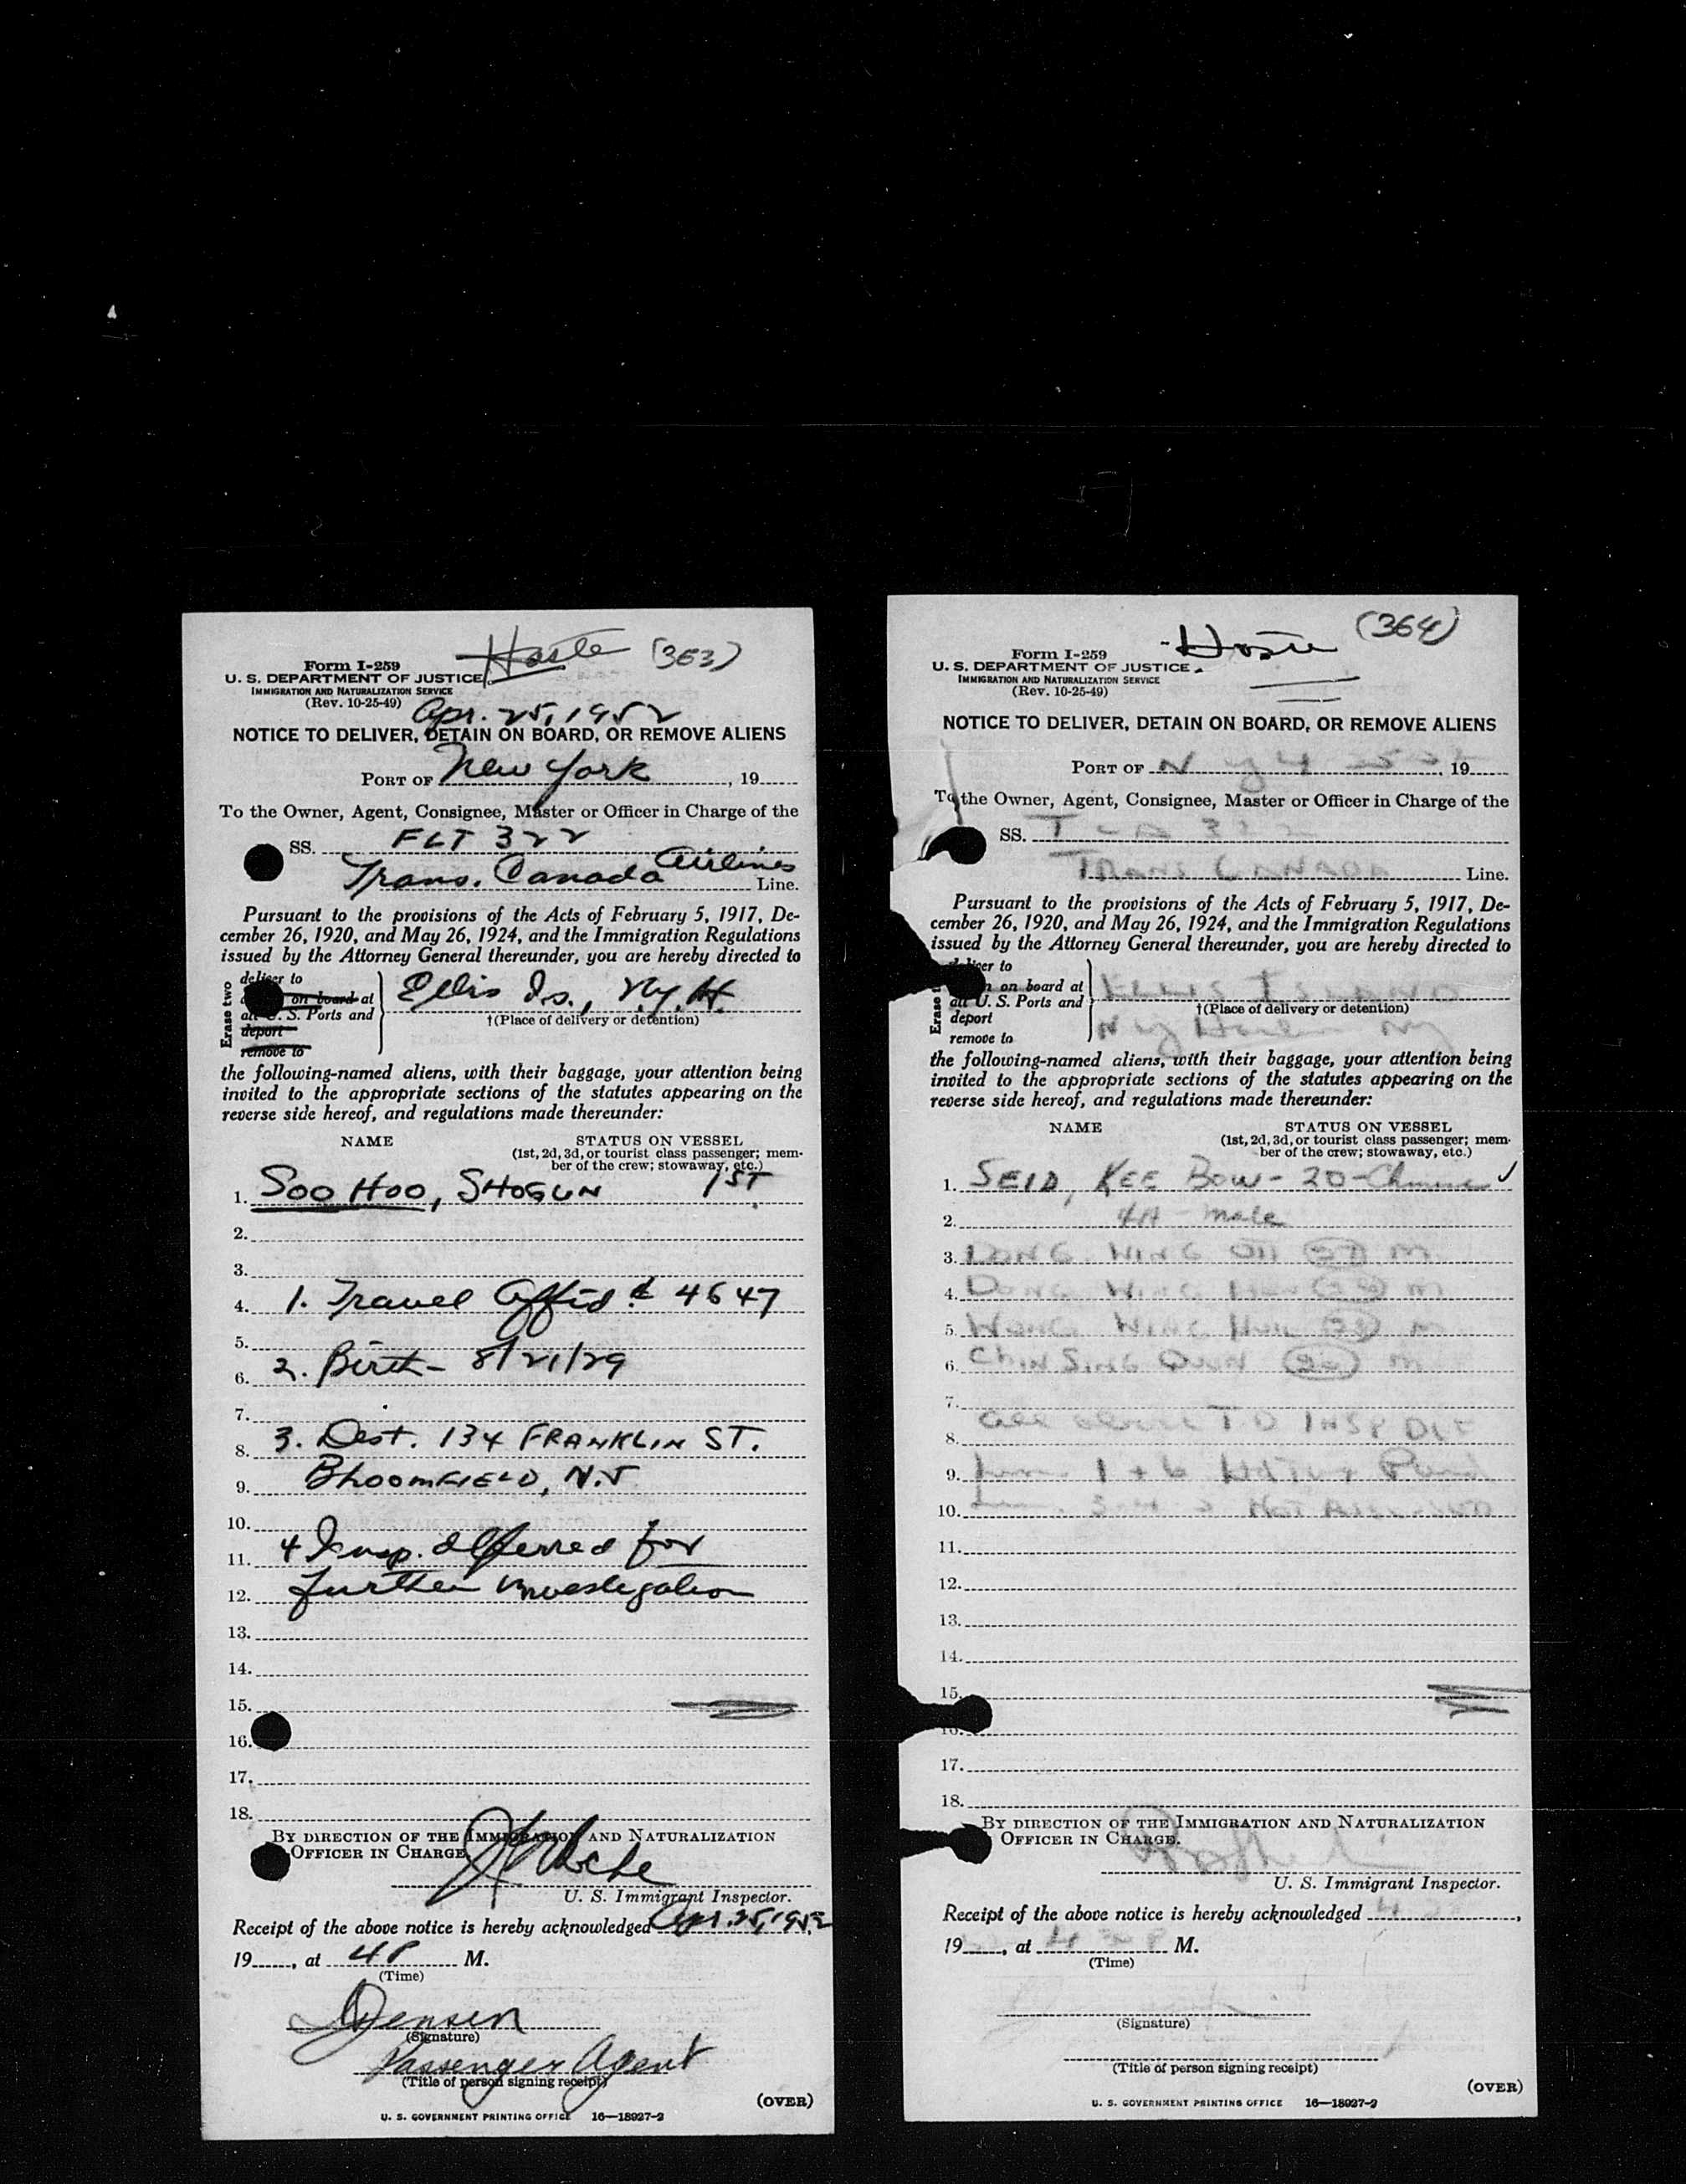 (363)
Form I-259
U. S. DEPARTMENT OF JUSTICE
IMMIGRATION AND NATURALIZATION SERVICE
(Rev. 10-25-49)
Apr. 25, 1952
NOTICE TO DELIVER, DETAIN ON BOARD, OR REMOVE ALIENS
PORT OF New York, 19
To the Owner, Agent, Consignee, Master or Officer in Charge of the
SS. FLT 322
Trans. Canada Airlines Line.
Pursuant to the provisions of the Acts of February 5, 1917, De-
cember 26, 1920, and May 26, 1924, and the Immigration Regulations
issued by the Attorney General thereunder, you are hereby directed to
Erase two
deliver to
on board at
all U. S. Ports and
deport
remove to
Ellis Is., N.Y.H.
†(Place of delivery or detention)
the following-named aliens, with their baggage, your attention being
invited to the appropriate sections of the statutes appearing on the
reverse side hereof, and regulations made thereunder:
NAME STATUS ON VESSEL
(1st, 2d, 3d, or tourist class passenger; mem-
ber of the crew; stowaway, etc.)
1. SOO HOO, SHOGUN 1ST
2.
3.
4. 1. Travel Affid. # 4647
5.
6. 2. Birth - 8/21/29
7.
8. 3. Dest. 134 FRANKLIN ST.
9. BLOOMFIELD, N.J.
10.
11. 4 Insp. deferred for
12. further investigation
13.
14.
15.
16.
17.
18.
BY DIRECTION OF THE IMMIGRATION AND NATURALIZATION
OFFICER IN CHARGE.
U. S. Immigrant Inspector.
Receipt of the above notice is hereby acknowledged Apr. 25, 1952
19, at 4 P M.
(Time)
Jensen
(Signature)
Passenger Agent
(Title of person signing receipt)
(OVER)
U. S. GOVERNMENT PRINTING OFFICE 16—18927-2
(364)
Form I-259
U. S. DEPARTMENT OF JUSTICE
IMMIGRATION AND NATURALIZATION SERVICE
(Rev. 10-25-49)
NOTICE TO DELIVER, DETAIN ON BOARD, OR REMOVE ALIENS
PORT OF N Y, 19
To the Owner, Agent, Consignee, Master or Officer in Charge of the
SS. TCA 322
TRANS CANADA Line.
Pursuant to the provisions of the Acts of February 5, 1917, De-
cember 26, 1920, and May 26, 1924, and the Immigration Regulations
issued by the Attorney General thereunder, you are hereby directed to
Erase
deliver to
on board at
all U. S. Ports and
deport
remove to
ELLIS ISLAND
†(Place of delivery or detention)
N Y Harbor NY
the following-named aliens, with their baggage, your attention being
invited to the appropriate sections of the statutes appearing on the
reverse side hereof, and regulations made thereunder:
NAME STATUS ON VESSEL
(1st, 2d, 3d, or tourist class passenger; mem-
ber of the crew; stowaway, etc.)
1. SEID, KEE BOW - 20 - Chinese
2. 4A - male
3. WING M
4. DONG WING M
5. WONG WING M
6. CHIN SING M
7.
8. all above T D INSP DEF
9. 1 + 6
10. 3 NOT
11.
12.
13.
14.
15.
16.
17.
18.
BY DIRECTION OF THE IMMIGRATION AND NATURALIZATION
OFFICER IN CHARGE.
U. S. Immigrant Inspector.
Receipt of the above notice is hereby acknowledged 4
19, at M.
(Time)
(Signature)
(Title of person signing receipt)
(OVER)
U. S. GOVERNMENT PRINTING OFFICE 16—18927-2